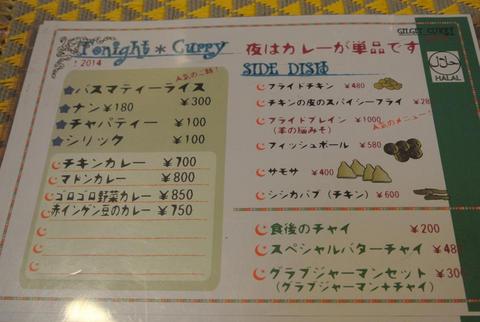 GILGIT CURRY
Tonight * Curry 夜はカレーが単品です
! 2014
人気のご飯!
バスマティーライス ¥300
ナン ¥180
チャパティー ¥100
シリック ¥100
チキンカレー ¥700
マトンカレー ¥800
ゴロゴロ野菜カレー ¥850
赤インゲン豆のカレー ¥750
SIDE DISH
حلال
HALAL
フライドチキン
チキンの皮のスパイシーフライ
フライドブレイン ¥1000
(羊の脳みそ)
人気のメニュー!
フィッシュボール ¥580
サモサ ¥400
シシカバブ(チキン) ¥600
食後のチャイ ¥200
スペシャルバターチャイ
グラブジャーマンセット
(グラブジャーマン+チャイ)